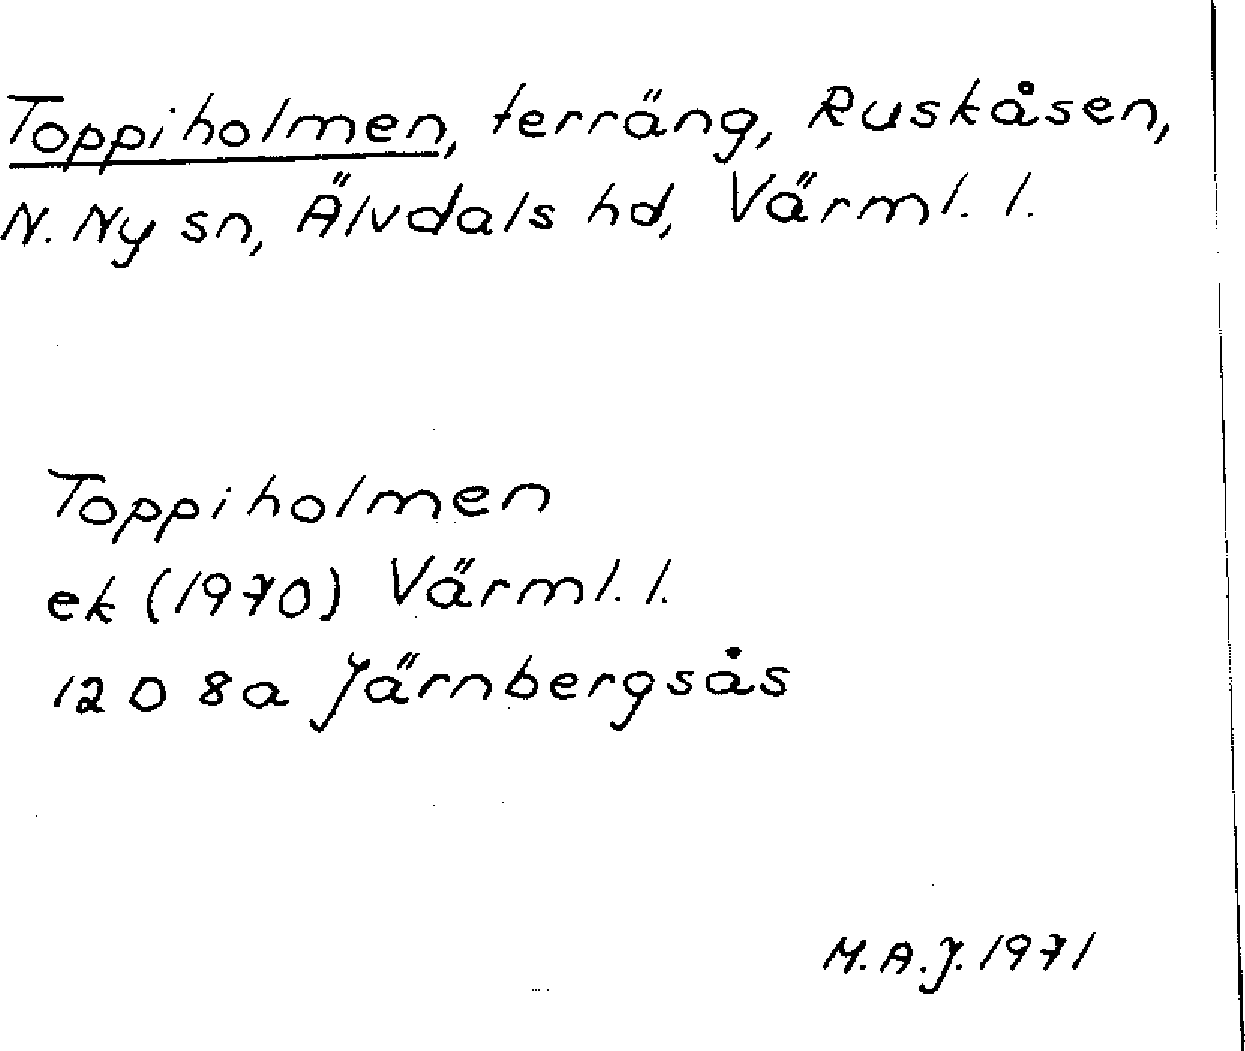 Toppiholmen, terräng, Ruskåsen,
N. Ny sn, Älvdals hd, Värml. l.
Toppiholmen
ek (1970) Värml. l.
12 D 8a Järnbergsås
M.A.J. 1971